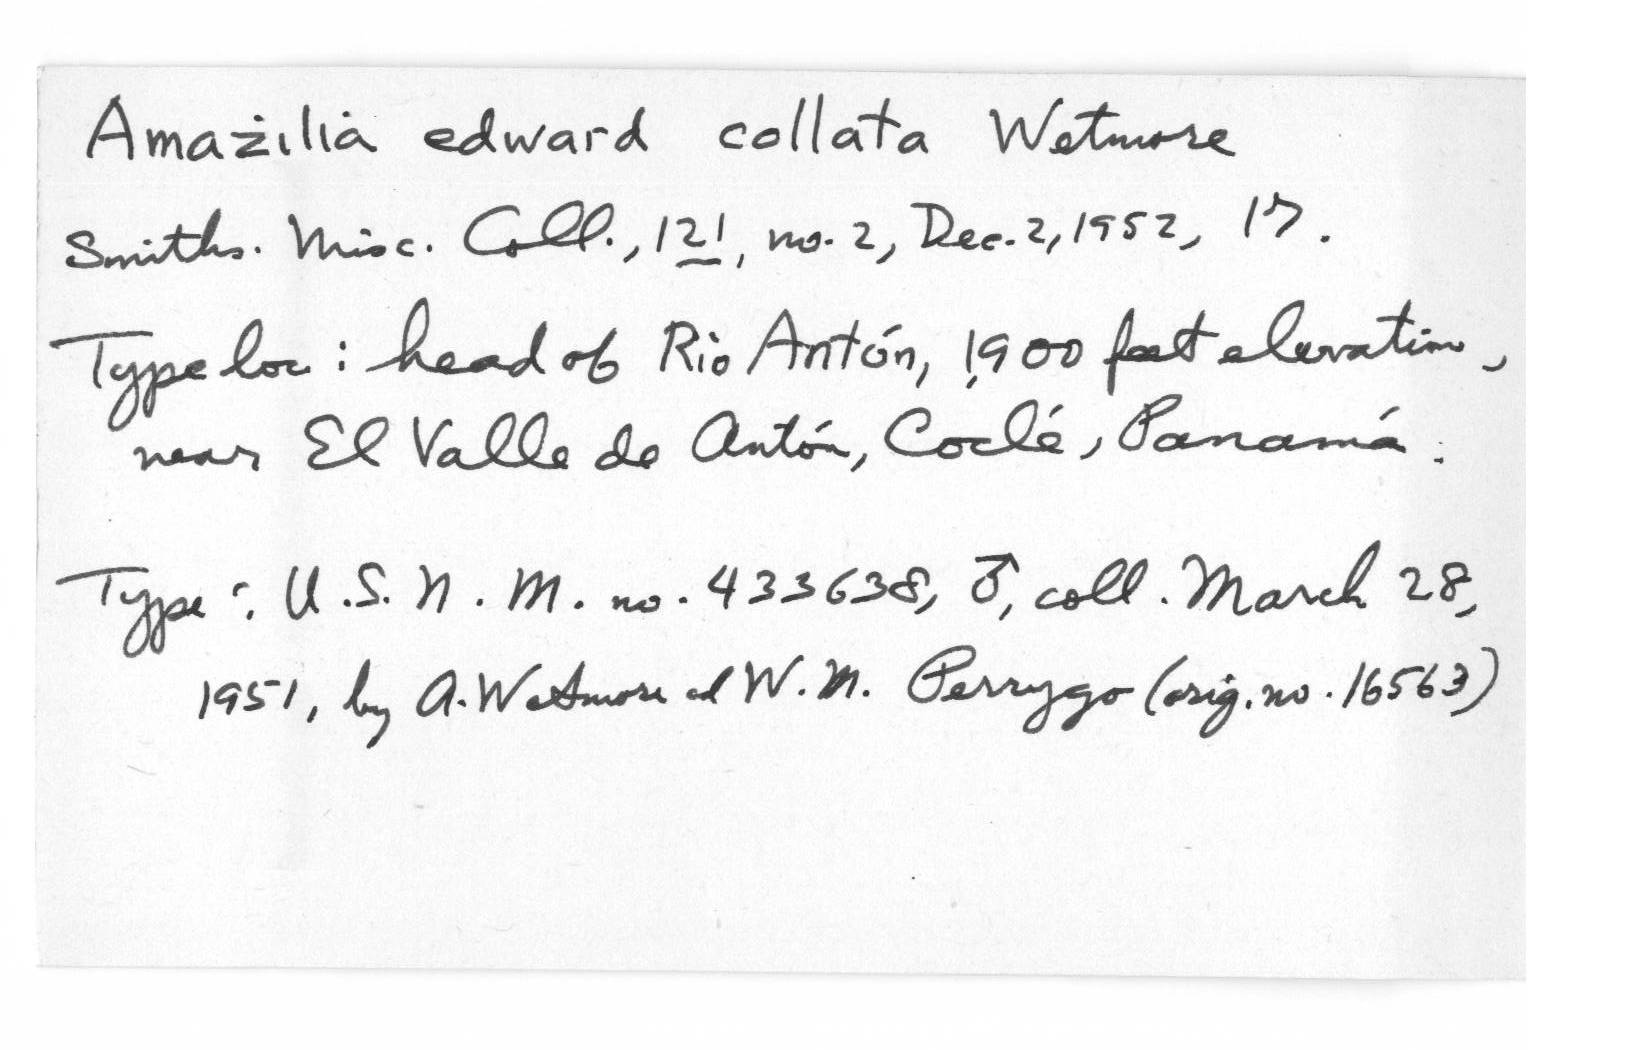 Amazilia edward collata Wetmore
Smiths. Misc. Coll., 121, no. 2, Dec. 2, 1952, 17.
Type loc: head of Río Antón, 1,900 feet elevation,
near El Valle de Antón, Coclé, Panamá.
Type: U.S.N.M. no. 433638, ♂, coll. March 28,
1951, by A. Wetmore and W.M. Perrygo (orig. no. 16563)